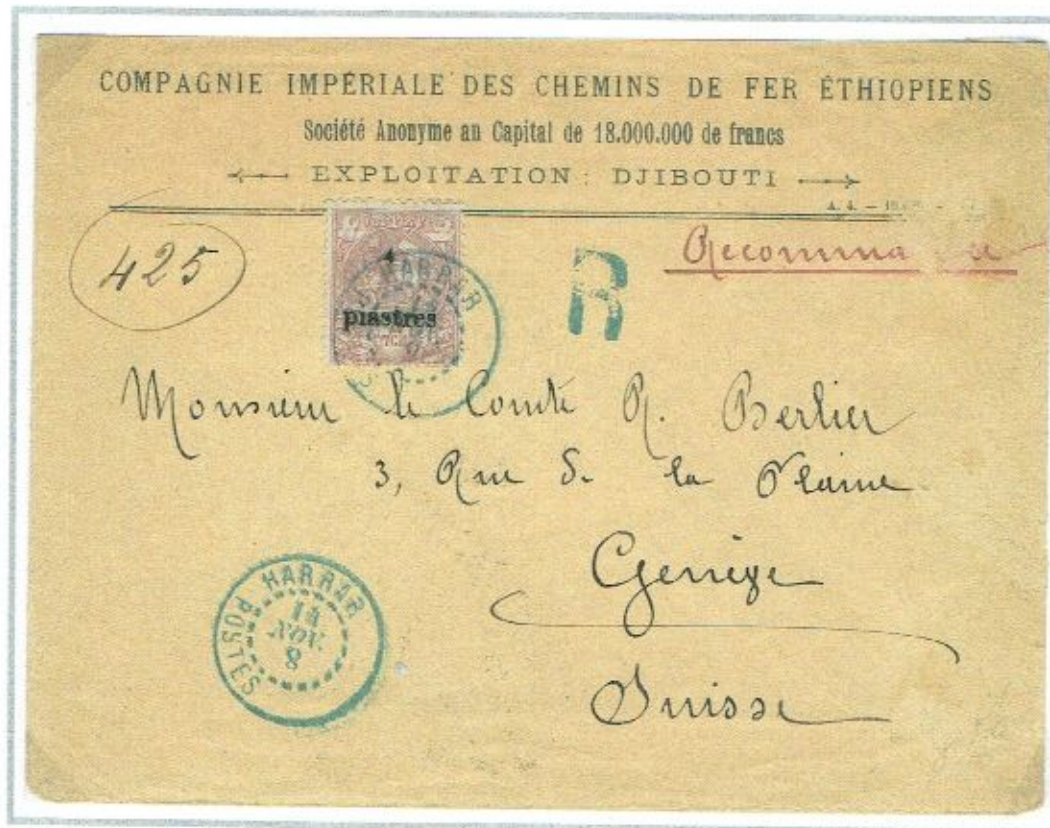 COMPAGNIE IMPÉRIALE DES CHEMINS DE FER ÉTHIOPIENS
Société Anonyme au Capital de 18.000.000 de francs
EXPLOITATION : DJIBOUTI
A. 4.
425
R
piastres
HARRAR
Monsieur le Comte R. Berlier
3, Rue de la Plaine
Genève
Suisse
HARRAR
11
NOV
8
POSTES